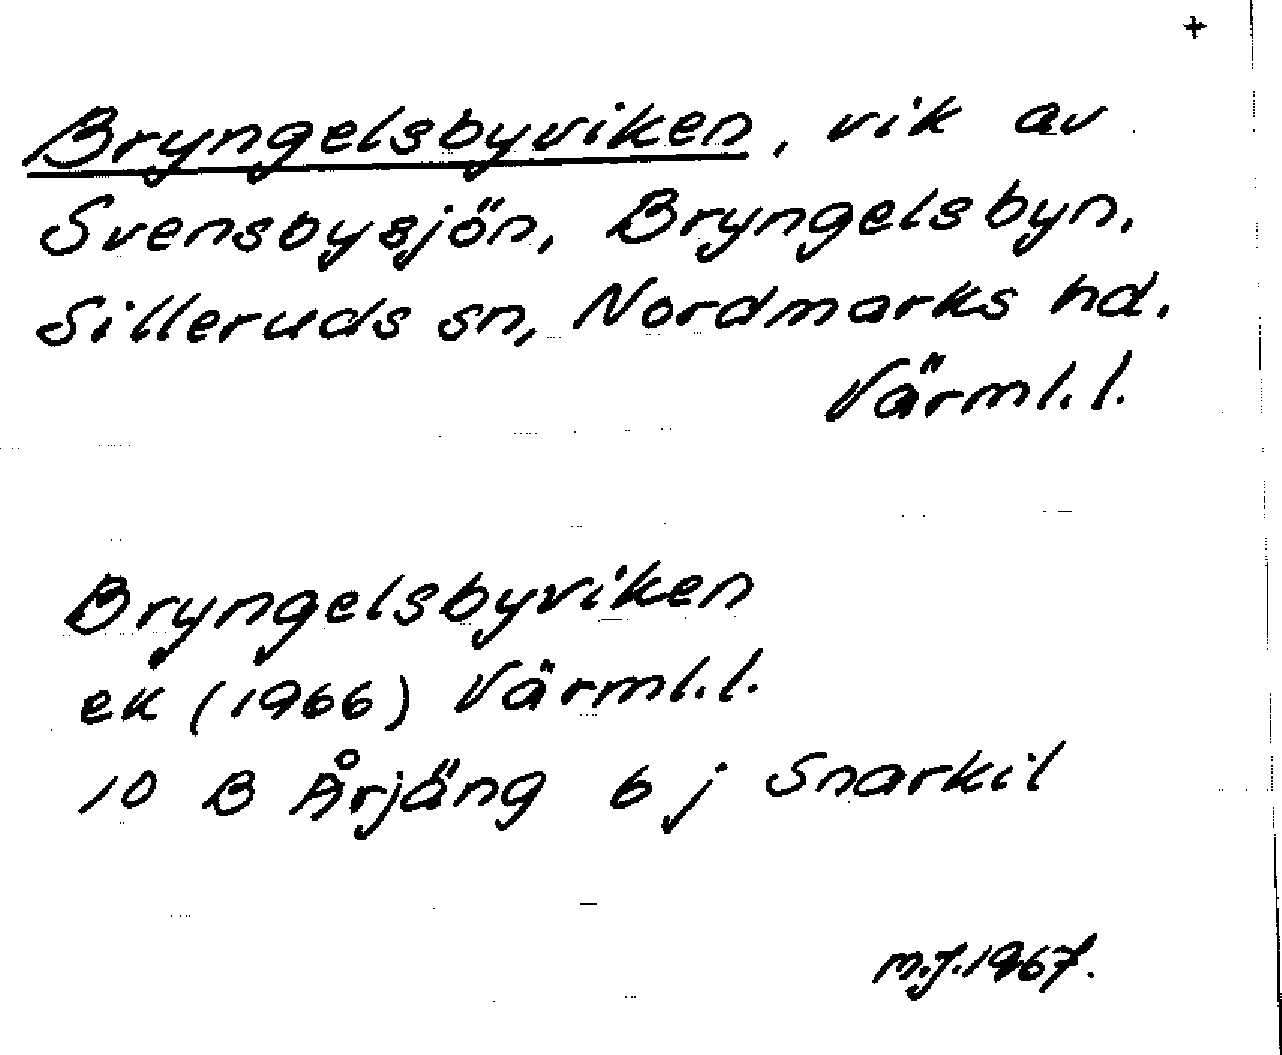 +
Bryngelsbyviken, vik av
Svensbysjön, Bryngelsbyn,
Silleruds sn, Nordmarks hd.
Värml.l.
Bryngelsbyviken
ek (1966) Värml.l.
10 B Årjäng 6 j Snarkil
m.J.1967.